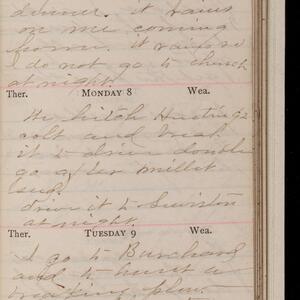 dinner. it rains
on me coming
home. it rains so
I do not go to church
at night.
Ther. MONDAY 8 Wea.
We hitch Hustings
colt and break
it to drive double
go after millet
seed
drive it to Lewiston
at night.
Ther. TUESDAY 9 Wea.
I go to Burchard
and to hunt a
breaking plow.